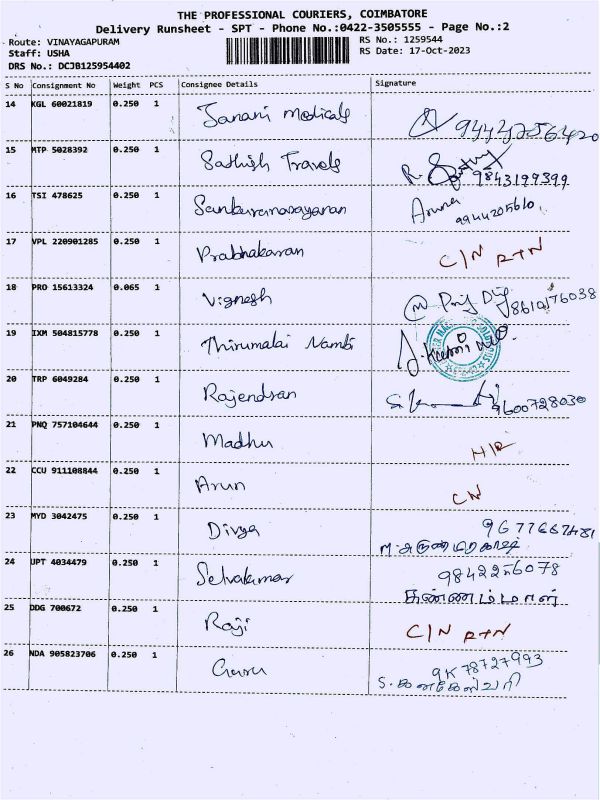 THE PROFESSIONAL COURIERS, COIMBATORE
Delivery Runsheet - SPT - Phone No.:0422-3505555 - Page No.:2
Route: VINAYAGAPURAM RS No.: 1259544
Staff: USHA RS Date: 17-Oct-2023
DRS No.: DCJB125954402
S No Consignment No Weight PCS Consignee Details Signature
14 KGL 60021819 0.250 1 Janani medicals
15 MTP 5028392 0.250 1 Sathish Travels 9843199399
16 TSI 478625 0.250 1 Sankaranarayanan Aruna
9944205610
17 VPL 220901285 0.250 1 Prabhakaran C/N RTN
18 PRO 15613324 0.065 1 Vignesh
19 IXM 504815778 0.250 1 Thirumalai Nambi
20 TRP 6049284 0.250 1 Rajendran 9600728030
21 PNQ 757104644 0.250 1 Madhu
22 CCU 911108844 0.250 1 Arun CN
23 MYD 3042475 0.250 1 Divya
24 UPT 4034479 0.250 1 Selvakumar 9842256078
கண்ணம்மாள்
25 DDG 700672 0.250 1 Raji C/N RTN
26 NDA 905823706 0.250 1 Guru